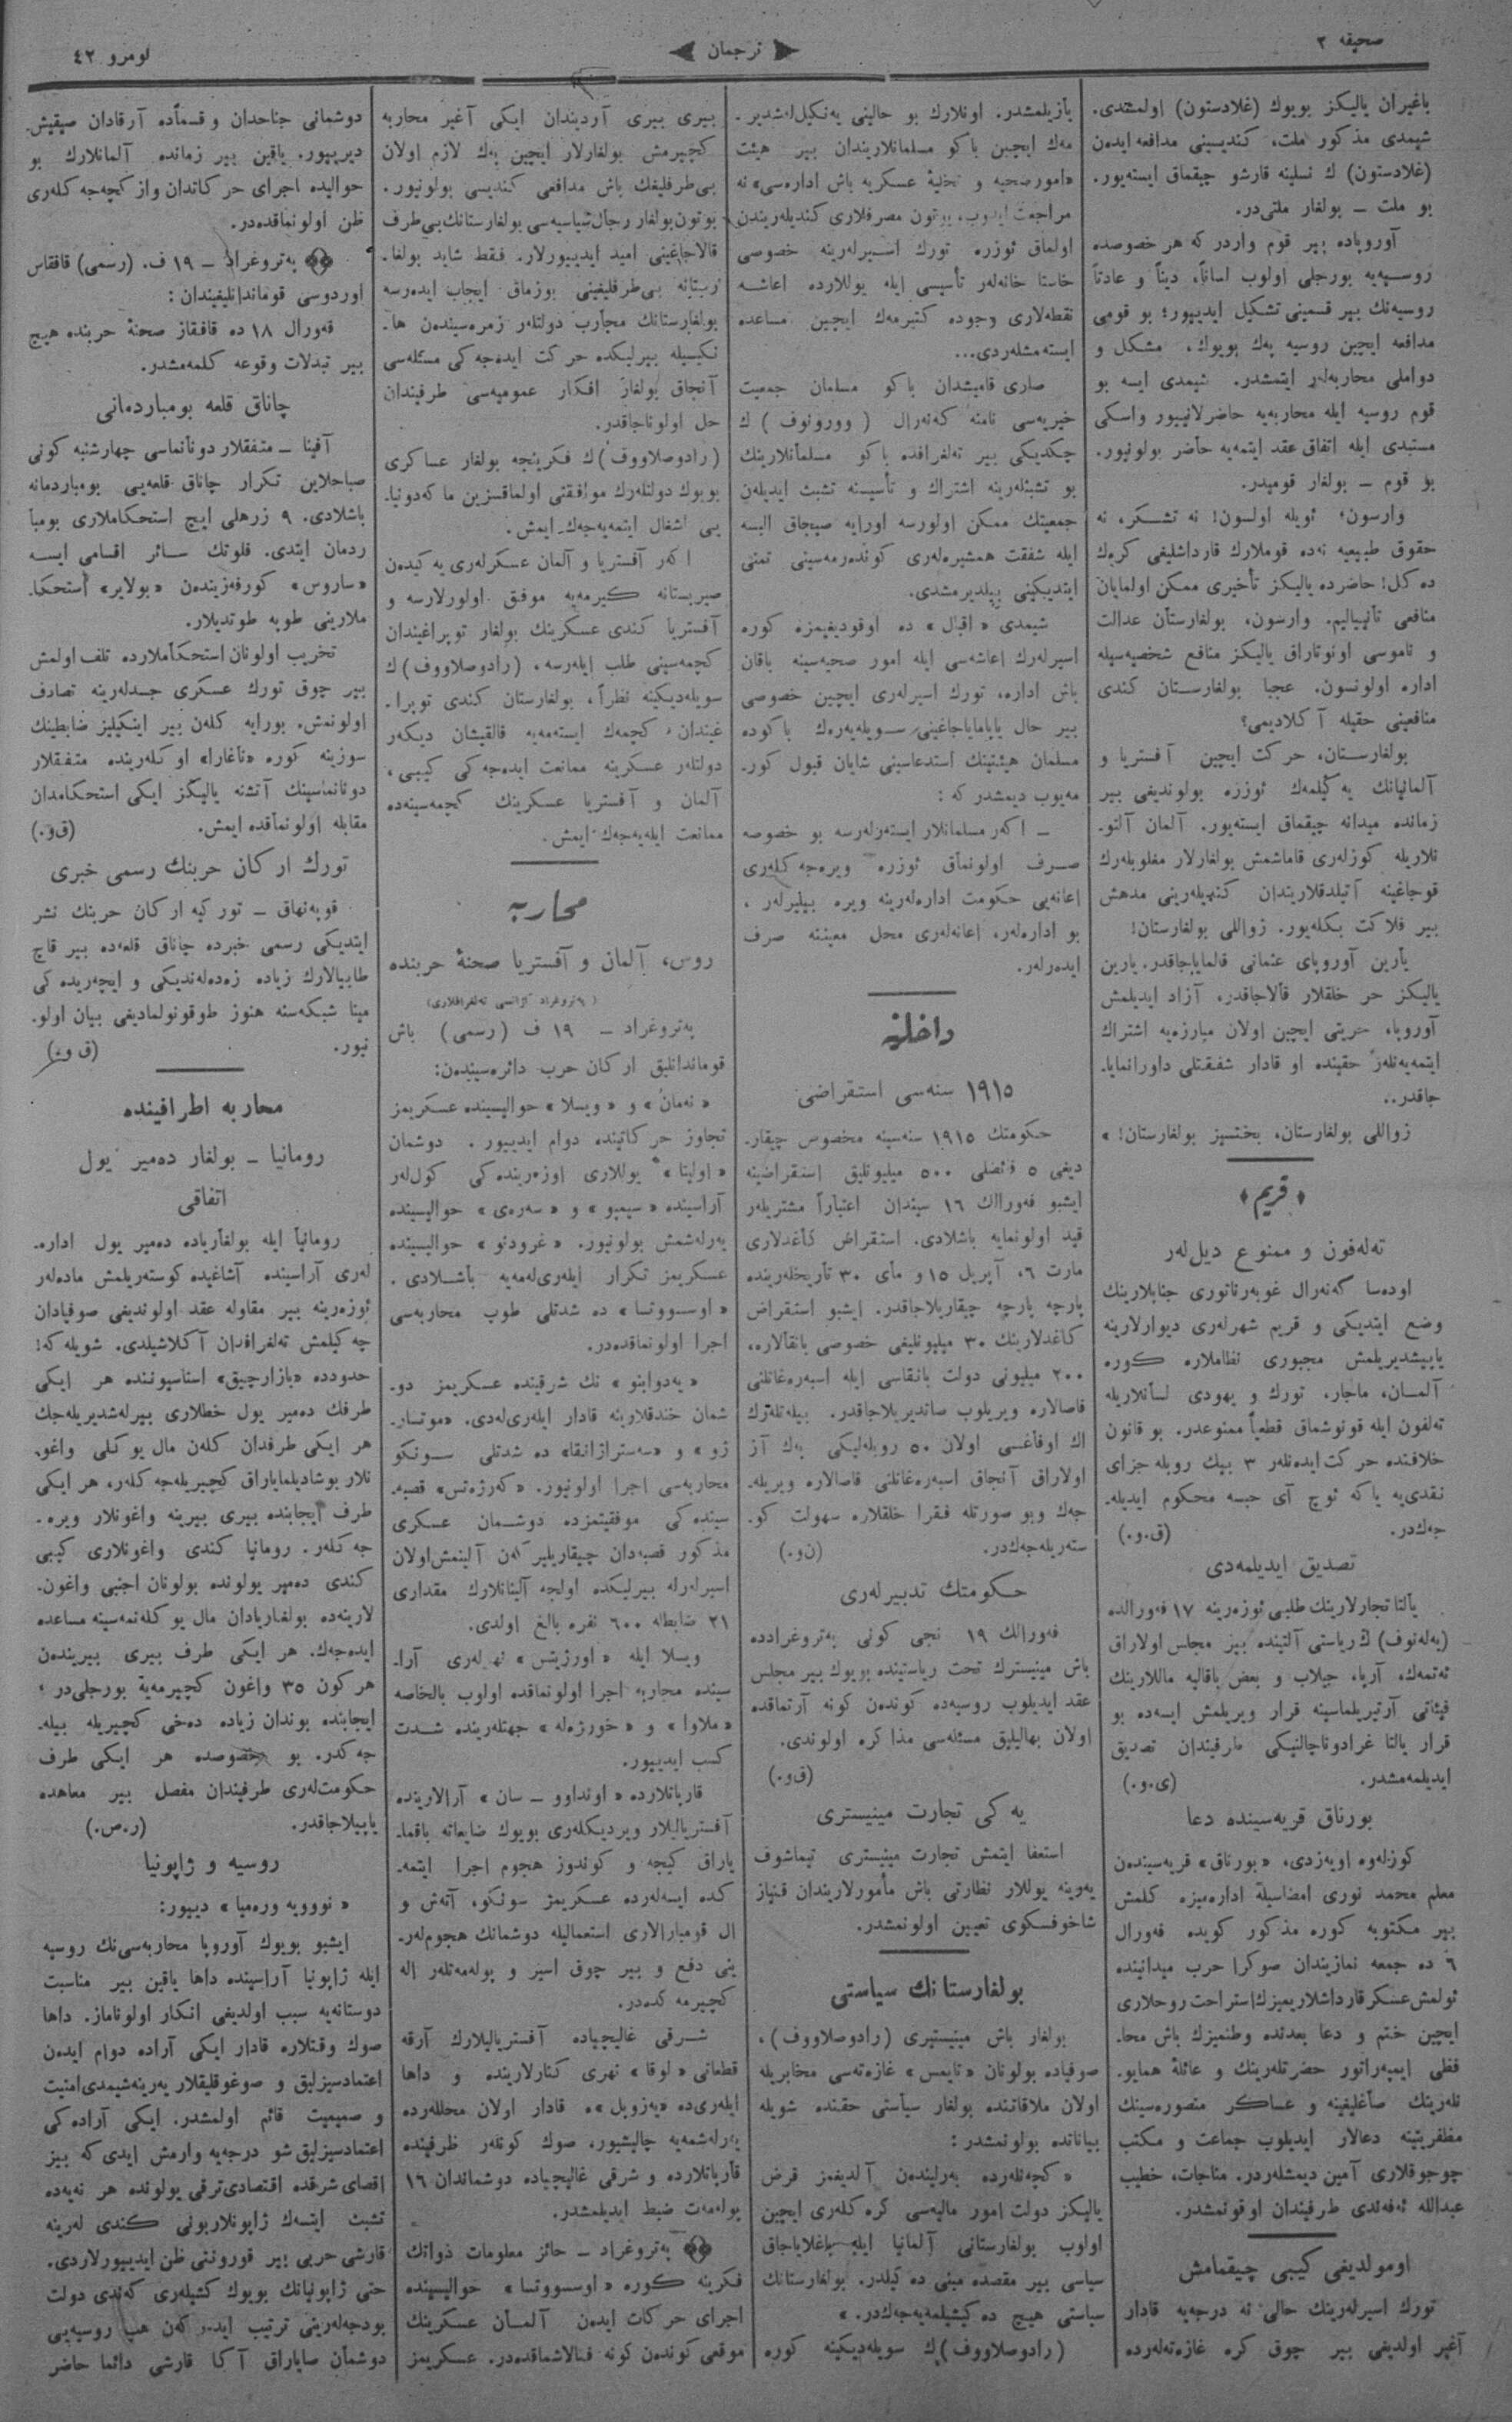 صحیفه ٢
ترجمان
نومرو ٤٢
باغیران یالیکز بویوك (غلادستون) اولمشدی.
شیمدی مذکور ملت، کندیسینی مدافعه ایدەن
(غلادستون) ك نسلینه قارشو چیقماق ایستەیور.
بو ملت ــ بولغار ملتی‌در.
آوروپاده بیر قوم واردر که هر خصوصده
روسییەیه بورجلی اولوب لساناً، دیناً و عادتاً
روسیه‌نك بیر قسمینی تشکیل ایدییور؛ بو قومی
مدافعه ایچین روسیه پەك بویوك، مشکل و
دواملی محاربەلەر ایتمشدر. شیمدی ایسه بو
قوم روسیه ایله محاربەیه حاضرلانییور واسکی
مستبدی ایله اتفاق عقد ایتمەیه حاضر بولونیور.
بو قوم ــ بولغار قومیدر.
وارسون، ئویله اولسون! نه تشکر، نه
حقوق طبیعیه نەده قوملارك قارداشلیغی کرەك
دەکل! حاضرده یالیکز تأخیری ممکن اولمایان
منافعی تانییالیم. وارسون، بولغارستان عدالت
و ناموسی اونوتاراق یالیکز منافع شخصیەسیله
اداره اولونسون. عجبا بولغارستان کندی
منافعینی حقیله آکلادیمی؟
بولغارستان، حرکت ایچین آفستریا و
آلمانیانك یەکیلمەك ئوزره بولوندیغی بیر
زمانده میدانه چیقماق ایستەیور. آلمان آلتو-
نلاریله کوزلەری قاماشمش بولغارلار مغلوبلەرك
قوجاغینه آتیلدقلاریندان کندیلەرینی مدهش
بیر فلاکت بکلەیور. زواللی بولغارستان!
یأرین آوروپای عثمانی قالمایاجاقدر. یارین
یالیکز حر خلقلار قالاجاقدر. آزاد ایدیلمش
آوروپا، حریتی ایچین اولان مبارزەیه اشتراك
ایتمەیەنلەر حقینده او قادار شفقتلی داورانمایا-
جاقدر..
زواللی بولغارستان، بختسیز بولغارستان! »
﴿ قریم ﴾
تەلەفون و ممنوع دیل‌لەر
اودەسا گەنەرال غوبەرناتوری جنابلارینك
وضع ایتدیکی و قریم شهرلەری دیوارلارینه
یاپیشدیریلمش مجبوری نظاملاره کوره
آلمان، ماجار، تورك و یهودی لسانلاریله
تەلفون ایله قونوشماق قطعیاً ممنوعدر. بو قانون
خلافنده حرکت ایدەنلەر ٣ بیك روبله جزای
نقدی‌یه یاکه ئوچ آی حبسه محکوم ایدیله-
جەك‌در. (ق.و.)
تصدیق ایدیلمەدی
یالتا تجارلارینك طلبی ئوزەرینه ١٧ فەورالده
(یەلەنوف) ك ریاستی آلتینده بیر مجلس اولاراق
ئەتمەك، آرپا، جیلاب و بعض باقالیه ماللارینك
فیئاتی آرتیریلماسینه قرار ویریلمش ایسەده بو
قرار یالتا غرادوناچالنیکی طرفیندان تصدیق
ایدیلمەمشدر. (ی.و.)
بورناق قریەسینده دعا
کوزلەوه اویەزدی، «بورناق» قریەسیندەن
معلم محمد نوری امضاسیله ادارەمیزه کلمش
بیر مکتوبه کوره مذکور کویده فەورال
٦ ده جمعه نمازیندان صوکرا حرب میدانینده
ئولمش عسکر قارداشلاریمیزك استراحت روحلاری
ایچین ختم و دعا بعدنده وطنمیزك باش محا-
فظی ایمپەراتور حضرتلەرینك و عائلهٔ همایو-
نلەرینك صأغلیغینه و عساکر منصورەسینك
مظفریتینه دعالار ایدیلوب جماعت و مکتب
چوجوقلاری آمین دیمشلەردر. مناجات، خطیب
عبدالله ئەفەندی طرفیندان اوقونمشدر.
اومولدیغی کیبی چیقمامش
تورك اسیرلەرینك حالی نه درجەیه قادار
آغیر اولدیغی بیر چوق کره غازەتەلەرده
یأزیلمشدر. اونلارك بو حالینی یەنکیل‌لەشدیر-
مەك ایچین باکو مسلمانلاریندان بیر هیئت
«امورصحیه و تخلیهٔ عسکریه باش ادارەسی» نه
مراجعت ایدوب، بوتون مصرفلاری کندیلەریندن
اولماق ئوزره تورك اسیرلەرینه خصوصی
خاستا خانەلەر تأسیسی ایله یوللارده اعاشه
نقطەلاری وجوده کتیرمەك ایچین مساعده
ایستەمشلەردی...
صاری قامیشدان باکو مسلمان جمعیت
خیریەسی نامنه گەنەرال (وورونوف) ك
چکدیکی بیر تەلغرافده باکو مسلمانلارینك
بو تشبثلەرینه اشتراك و تأسیسنه تشبث ایدیلەن
جمعیتك ممکن اولورسه اورایه صیجاق البسه
ایله شفقت همشیرەلەری کوندەرمەسینی تمنی
ایتدیکینی بیلدیرمشدی.
شیمدی «اقبال» ده اوقودیغیمزه کوره
اسیرلەرك اعاشەسی ایله امور صحیەسینه باقان
باش اداره، تورك اسیرلەری ایچین خصوصی
بیر حال یاپاماياجاغینی سویلەیەرەك باکوده
مسلمان هیئتینك استدعاسینی شایان قبول کور-
مەیوب دیمشدر که:
ــ اکەر مسلمانلار ایستەرلەرسه بو خصوصه
صرف اولونماق ئوزره ویرەجەکلەری
اعانەیی حکومت ادارەلەرینه ویره بیلیرلەر،
بو ادارەلەر، اعانەلەری محل معینته صرف
ایدەرلەر.
داخلیه
١٩١٥ سنەسی استقراضی
حکومتك ١٩١٥ سنەسینه مخصوص چیقار-
دیغی ٥ فائضلی ٥٠٠ میلیونلیق استقراضینه
ایشبو فەورالك ١٦ سیندان اعتباراً مشتریلەر
قید اولونمایه باشلادی. استقراض کأغدلاری
مارت ٦، آپریل ١٥ و مای ٣٠ تأریخلەرینده
پارچه پارچه چیقاریلاجاقدر. ایشبو استقراض
کاغدلارینك ٣٠ میلیونلیغی خصوصی بانقالاره،
٢٠٠ میلیونی دولت بانقاسی ایله اسبەرەغاتلنی
قاصالاره ویریلوب صاتدیریلاجاقدر. بیلەتلەرك
اك اوفأغسی اولان ٥٠ روبلەلیکی پەك آز
اولاراق آنجاق اسبەرەغاتلنی قاصالاره ویریله-
جەك وبو صورتله فقرا خلقلاره سهولت کو-
ستەریلەجەك‌در. (ن.و.)
حکومتك تدبیرلەری
فەورالك ١٩ نجی کونی پەتروغرادده
باش مینیسترك تحت ریاستینده بویوك بیر مجلس
عقد ایدیلوب روسیەده کوندەن کونه آرتماقده
اولان بهالیلیق مسئلەسی مذاکره اولوندی.
(ق.و.)
یەکی تجارت مینیستری
استعفا ایتمش تجارت مینیستری تیماشوف
یەرینه یوللار نظارتی باش مأمورلاریندان قنیاز
شاخوفسکوی تعیین اولونمشدر.
بولغارستانك سیاستی
بولغار باش مینیستیری (رادوصلاووف)،
صوفیاده بولونان «تایمس» غازەتەسی مخابریله
اولان ملاقاتنده بولغار سیأستی حقنده شویله
بیاناتده بولونمشدر:
« کچەنلەرده بەرلیندەن آلدیغمز قرض
یالیکز دولت امور مالیەسی کرەکلەری ایچین
اولوب بولغارستانی آلمانیا ایله باغلایاجاق
سیاسی بیر مقصده مبنی دەکیلدر. بولغارستانك
سیاستی هیچ دەکیشیلمەیەجەك‌در. »
(رادوصلاووف) ك سویلەدیکینه کوره
بیری بیری آردیندان ایکی آغیر محاربه
کچیرمش بولغارلار ایچین پەك لازم اولان
بی‌طرفلیغك باش مدافعی کندیسی بولونیور.
بوتون بولغار رجال سیاسیەسی بولغارستانك بی‌طرف
قالاجاغینی امید ایدییورلار. فقط شاید بولغا-
رستانه بی‌طرفلیغینی بوزماق ایجاب ایدەرسه
بولغارستانك محارب دولتلەر زمرەسیندەن ها-
نکیسیله بیرلیکده حرکت ایدەجەکی مسئلەسی
آنجاق بولغار افکار عمومیەسی طرفیندان
حل اولوناجاقدر.
(رادوصلاووف) ك فکرینجه بولغار عساکری
بویوك دولتلەرك موافقتی اولماقسزین ماکەدونیا-
یی اشغال ایتمەیەجەك‌ایمش.
اکەر آفستریا و آلمان عسکرلەری یەکیدەن
صیربستانه کیرمەیه موفق اولورلارسه و
آفستریا کندی عسکرینك بولغار توپراغیندان
کچمەسینی طلب ایلەرسه، (رادوصلاووف) ك
سویلەدیکینه نظراً، بولغارستان کندی توپرا-
غیندان کچمەك ایستەمەیه قالقیشان دیکەر
دولتلەر عسکرینه ممانعت ایدەجەکی کیبی،
آلمان و آفستریا عسکرینك کچمەسینەده
ممانعت ایلەیەجەك ایمش.
محاربه
روس، آلمان و آفستریا صحنهٔ حربنده
(پەتروغراد آژانسی تەلغرافلاری)
پەتروغراد ــ ١٩ ف (رسمی) باش
قوماندانلیق ارکان حرب دائرەسیندەن:
«نەمان» و «ویسلا» حوالیسینده عسکریمز
تجاوز حرکاتینده دوام ایدییور. دوشمان
«اولیتا» یوللاری اوزەرینده‌کی کول‌لەر
آراسینده «سیمبو» و «سەرەی» حوالیسینده
یەرلەشمش بولونیور. «غرودنو» حوالیسینده
عسکریمز تکرار ایلەری‌لەمەیه باشلادی.
«اوسووتسا» ده شدتلی طوپ محاربەسی
اجرا اولونماقدەدر.
«یەدوابنو» نك شرقینده عسکریمز دو-
شمان خندقلارینه قادار ایلەری‌لەدی. «موتسار-
ژو» و «سەسترازانقا» ده شدتلی سونکو
محاربەسی اجرا اولونیور. «کەرژەتس» قصبه-
سینده‌کی موفقیتمزده دوشمان عسکری
مذکور قصبەدان چیقاریلیرکەن آلینمش اولان
اسیرلەرله بیرلیکده اولجه آلینانلارك مقداری
٢١ ضابطله ٦٠٠ نفره بالغ اولدی.
ویسلا ایله «اورژیتس» نهرلەری آرا-
سینده محاربه اجرا اولونماقده اولوب بالخاصه
«ملاوا» و «خورژەله» جهتلەرینده شدت
کسب ایدییور.
قارپاتلارده «اونداوو ــ سان» آرالارینده
آفستریالیلار ویردیکلەری بویوك ضایعاته باقما-
یاراق کیجه و کوندوز هجوم اجرا ایتمه-
کده ایسەلەرده عسکریمز سونکو، آتەش و
ال قومبارالاری استعمالیله دوشمانك هجوملەر-
ینی دفع و بیر چوق اسیر و پولەمەتلەر اله
کچیرمەکدەدر.
شرقی غالیچیاده آفستریالیلارك آرقه
قطعاتی «لوقا» نهری کنارلارینده و داها
ایلەری‌ده «یەزوپل» ه قادار اولان محللەرده
یەرلەشمەیه چالیشیور، صوك کونلەر ظرفینده
قأرپاتلارده و شرقی غالیچیاده دوشماندان ١٦
پولەمەت ضبط ایدیلمشدر.
پەتروغراد ــ حائز معلومات ذواتك
فکرینه کوره «اوسسووتسا» حوالیسینده
اجرای حرکات ایدەن آلمان عسکرینك
موقعی کوندەن کونه فنالاشماقدەدر. عسکریمز
دوشمانی جناحدان و قسماًده آرقادان صیقیش-
دیرییور. یاقین بیر زمانده آلمانلارك بو
حوالیده اجرای حرکاتدان وازکچەجەکلەری
ظن اولونماقدەدر.
پەتروغراد ــ ١٩ ف. (رسمی) قافقاس
اوردوسی قوماندانلیغیندان:
فەورال ١٨ ده قافقاز صحنهٔ حربنده هیچ
بیر تبدلات وقوعه کلمەمشدر.
چاناق قلعه بومباردمانی
آفینا ــ متفقلار دونانماسی چهارشنبه کونی
صباحلاین تکرار چاناق قلعەیی بومباردمانه
باشلادی. ٩ زرهلی ایچ استحکاملاری بومبا
ردمان ایتدی. فلوتك سائر اقسامی ایسه
«ساروس» کورفەزیندەن «بولایر» استحکا-
ملارینی طوپه طوتدیلار.
تخریب اولونان استحکاملارده تلف اولمش
بیر چوق تورك عسکری جسدلەرینه تصادف
اولونمش. بورایه کلەن بیر اینکیلیز ضابطینك
سوزینه کوره «ناغارا» اوکلەرینده متفقلار
دونانماسینك آتشنه یالیکز ایکی استحکامدان
مقابله اولونماقده ایمش. (ق.و.)
تورك ارکان حربنك رسمی خبری
قوپەنهاق ــ تورکیه ارکان حربنك نشر
ایتدیکی رسمی خبرده چاناق قلعەده بیر قاچ
طابیالارك زیاده زەدەلەندیکی و ایچەریده‌کی
مینا شبکەسنه هنوز طوقونولمادیغی بیان اولو-
نیور. (ق و.)
محاربه اطرافینده
رومانیا ــ بولغار دەمیر یول
اتفاقی
رومانیا ایله بولغاریاده دەمیر یول اداره-
لەری آراسینده آشاغیده کوستەریلمش مادەلەر
ئوزەرینه بیر مقاوله عقد اولوندیغی صوفیادان
چەکیلمش تەلغرافدان آکلاشیلدی. شویله که:
حدودده «بازارچیق» استاسیوننده هر ایکی
طرفك دەمیر یول خطلاری بیرلەشدیریلەجك
هر ایکی طرفدان کلەن مال یوکلی واغو-
نلار بوشادیلمایاراق کچیریلەجەکلەر، هر ایکی
طرف ایجابنده بیری بیرینه واغونلار ویره-
جەکلەر. رومانیا کندی واغونلاری کیبی
کندی دەمیر یولونده بولونان اجنبی واغون-
لارینەده بولغاریادان مال یوکلەنمەسینه مساعده
ایدەجەك. هر ایکی طرف بیری بیریندەن
هرکون ٣٥ واغون کچیرمەیه بورجلی‌در،
ایجابنده بوندان زیاده دەخی کچیریله بیله-
جەکدر. بو خصوصده هر ایکی طرف
حکومتلەری طرفیندان مفصل بیر معاهده
یاپیلاجاقدر. (ر.ص.)
روسیه و ژاپونیا
«نووویه ورەمیا» دییور:
ایشبو بویوك آوروپا محاربەسی‌نك روسیه
ایله ژاپونیا آراسینده داها یاقین بیر مناسبت
دوستانەیه سبب اولدیغی انکار اولوناماز. داها
صوك وقتلاره قادار ایکی آراده دوام ایدەن
اعتمادسیزلیق و صوغوقلیقلار یەرینه‌شیمدی‌امنیت
و صمیمیت قائم اولمشدر. ایکی آراده‌کی
اعتمادسیزلیق شو درجەیه وارمش ایدی که بیز
اقصای شرقده اقتصادی‌ترقی یولونده هر نەیەده
تشبث ایتسەك ژاپونلاربونی کندی لەرینه
قارشی حربی بیر قوروتتی ظن ایدییورلاردی.
حتی ژاپونیانك بویوك کشیلەری کەندی دولت
بودجەلەرینی ترتیب ایدەرکەن هپ روسیەیی
دوشمأن صایاراق آکا قارشی دائما حاضر